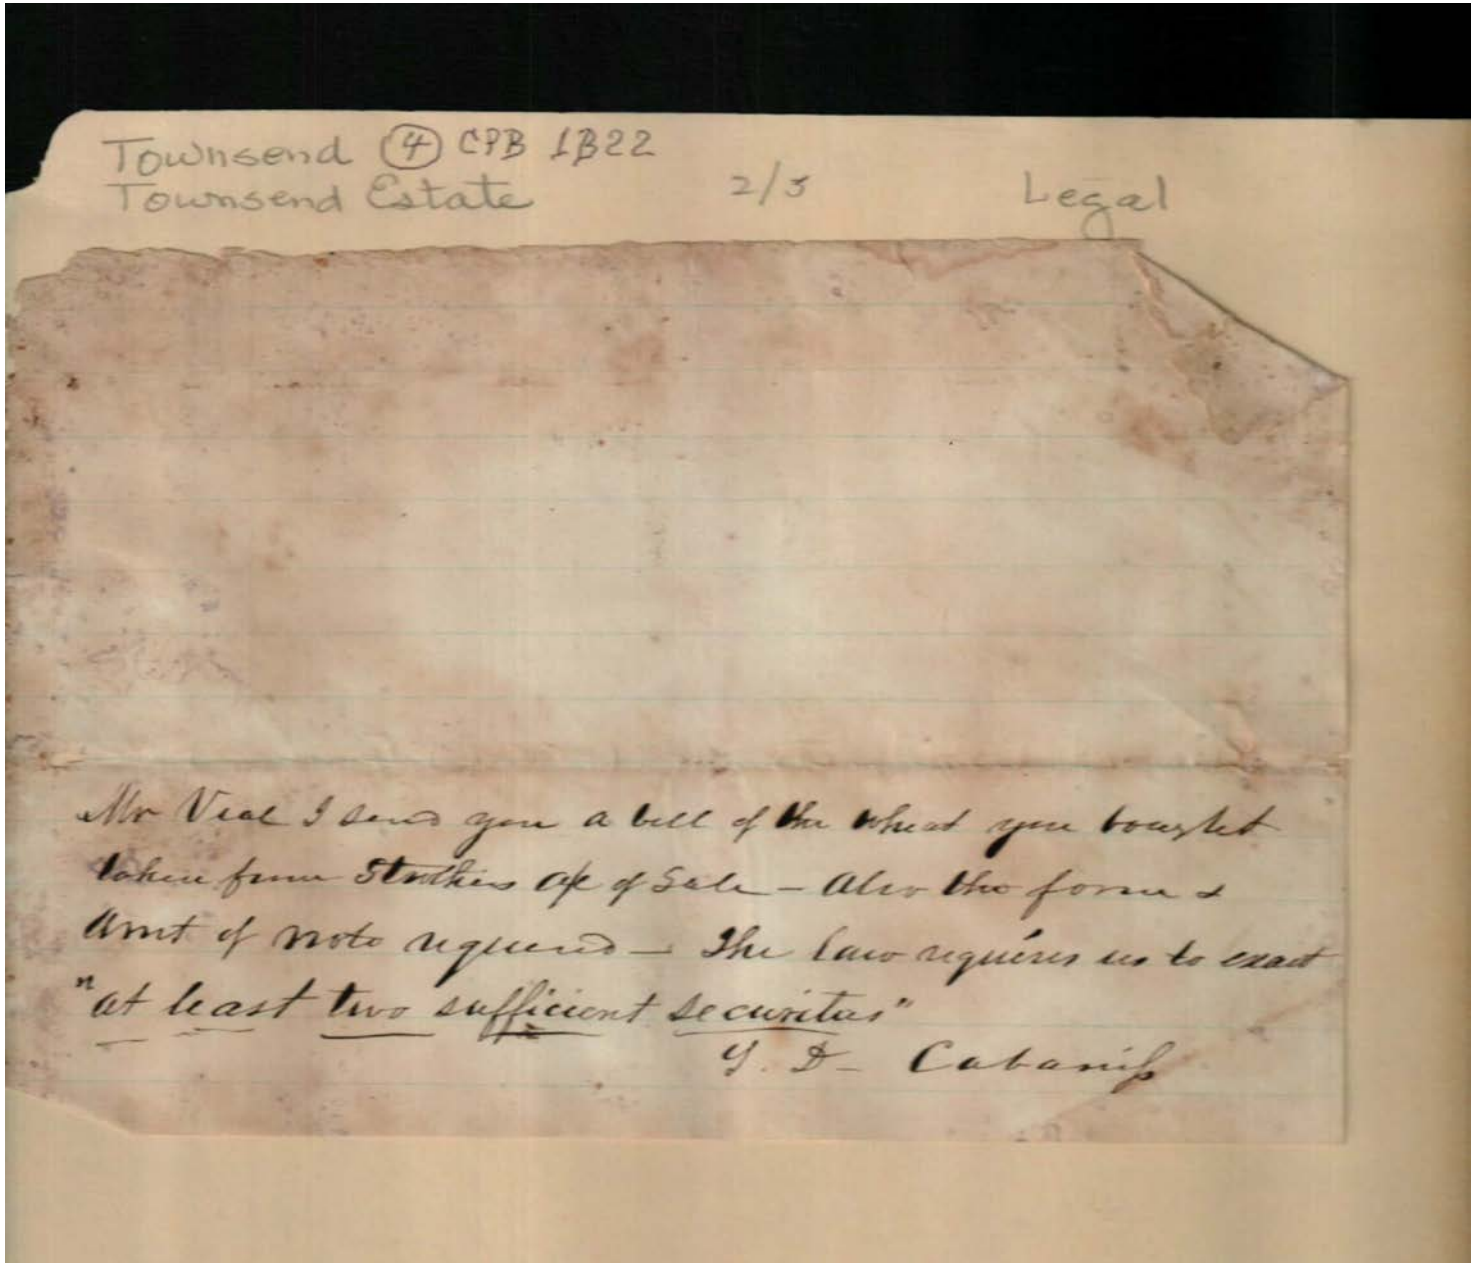 Townsend ④ CPB 1B22
Townsend Estate 2/3 Legal
Mr Veal I send you a bill of the wheat you bought
taken from Struthers a/c of Sale – Also the form &
Amt of note required – The law requires us to exact
"at least two sufficient securitas"
S. D – Cabaniss